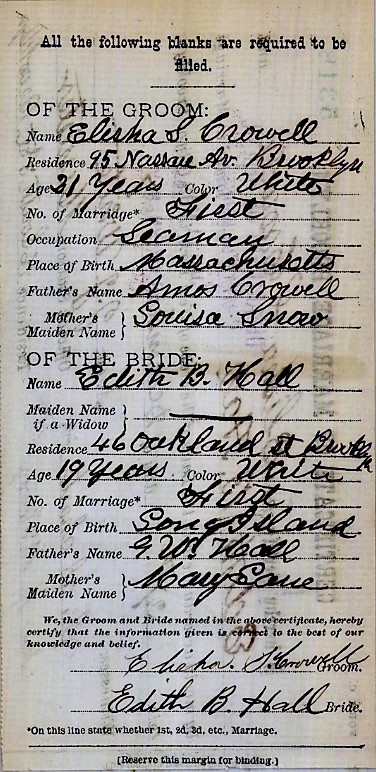 All the following blanks are required to be
filled.
OF THE GROOM:
Name Elisha S. Crowell
Residence 95 Nassau Av. Brooklyn
Age 21 Years Color White
No. of Marriage* First
Occupation Seaman
Place of Birth Massachusetts
Father's Name Amos Crowell
Mother's Maiden Name } Louisa Snow
OF THE BRIDE:
Name Edith B. Hall
Maiden Name if a Widow } —
Residence 46 Oakland st Brooklyn
Age 19 Years Color White
No. of Marriage* First
Place of Birth Long Island
Father's Name G. W. Hall
Mother's Maiden Name } Mary Lane
We, the Groom and Bride named in the above certificate, hereby
certify that the information given is correct to the best of our
knowledge and belief.
Elisha. S. Crowell Groom.
Edith B. Hall Bride.
*On this line state whether 1st, 2d, 3d, etc., Marriage.
[Reserve this margin for binding.]